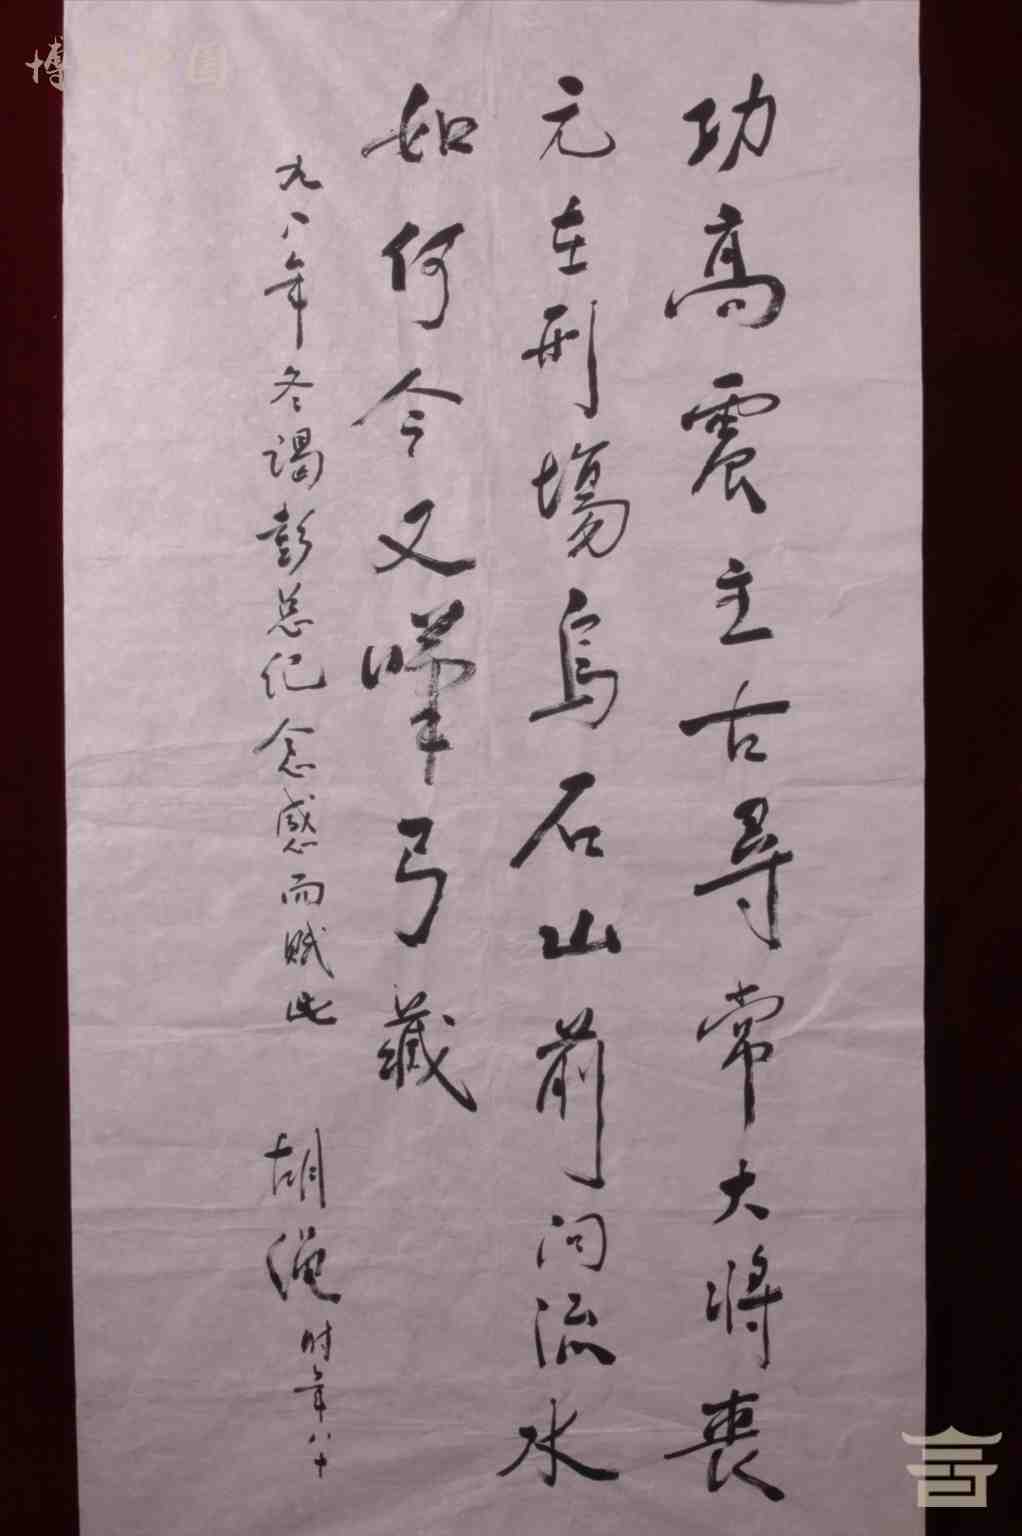 功高震主古尋常大将喪
元在刑場烏石山前问流水
如何今又嘆弓藏
九八年冬谒彭总纪念感而賦此
胡绳时年八十